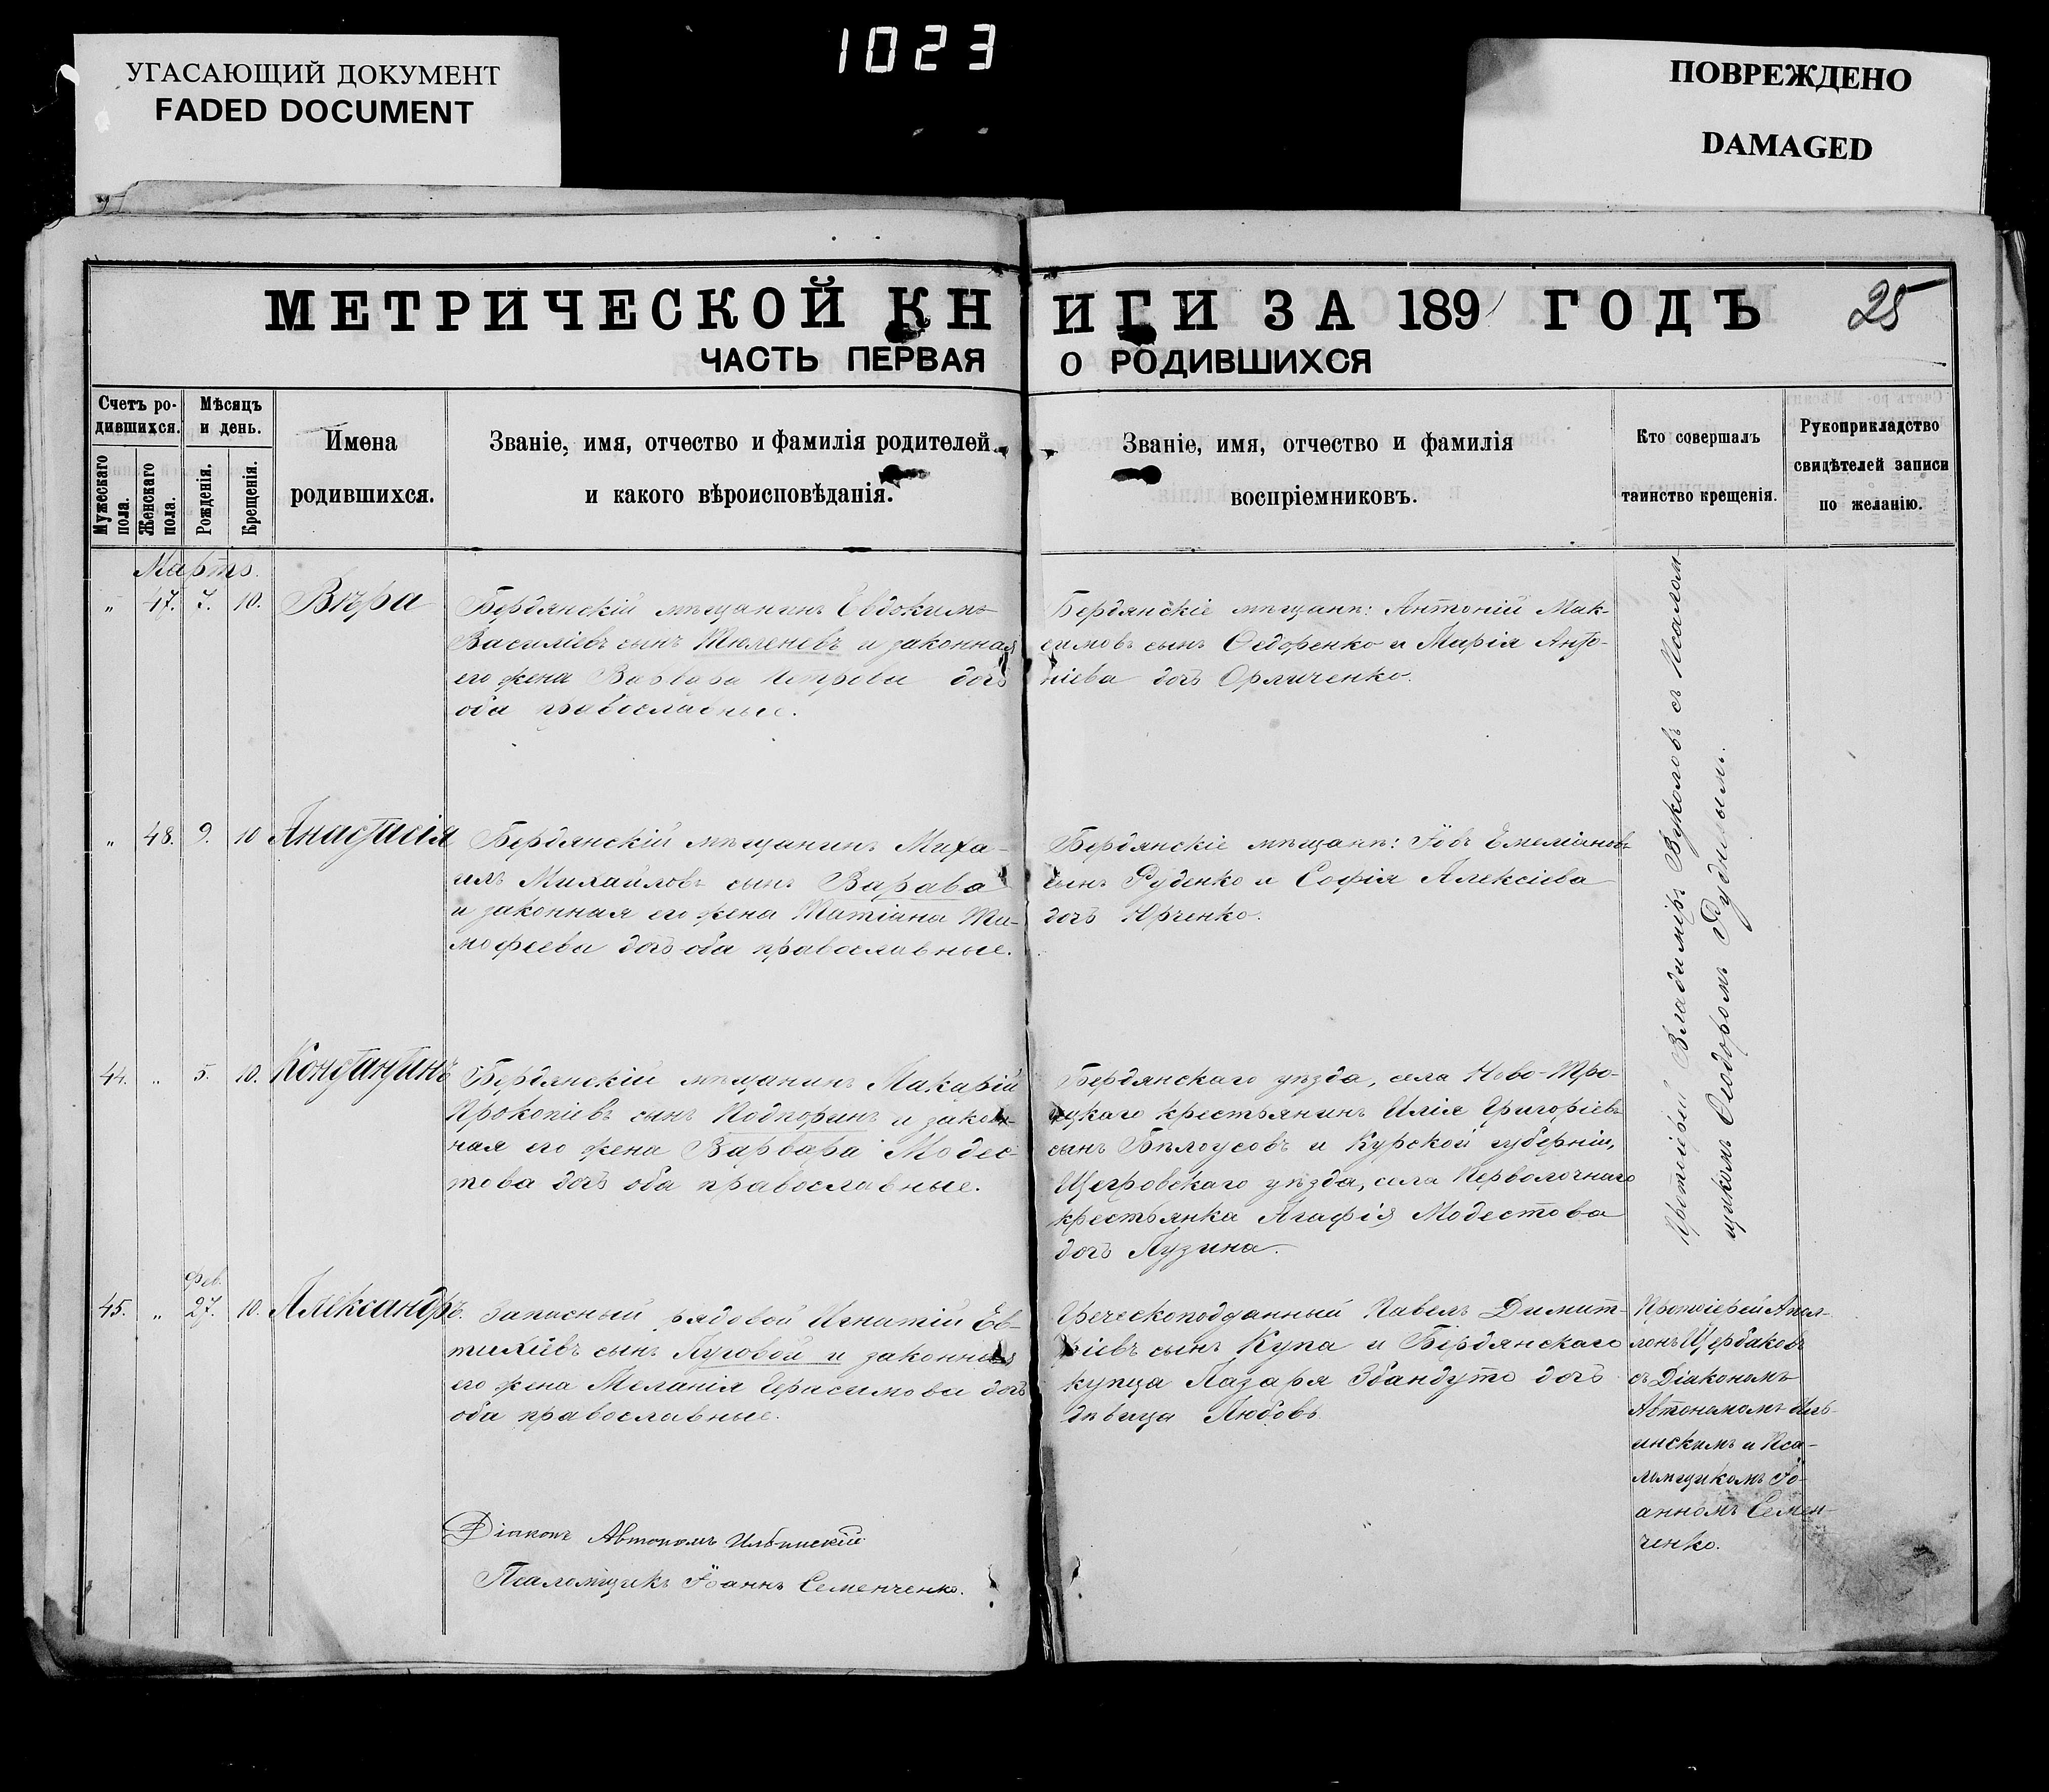 УГАСАЮЩИЙ ДОКУМЕНТ
FADED DOCUMENT
1023
ПОВРЕЖДЕНО
DAMAGED
МЕТРИЧЕСКОЙ КН
ИГИ ЗА 1891 ГОДЪ
25
ЧАСТЬ ПЕРВАЯ
О РОДИВШИХСЯ
Счетъ ро-
дившихся.
Мужескаго пола.
Женскаго пола.
Мѣсяцъ
и день.
Рожденія.
Крещенія.
Имена
родившихся.
Званіе, имя, отчество и фамилія родителей
и какого вѣроисповѣданія.
Званіе, имя, отчество и фамилія
воспріемниковъ.
Кто совершалъ
таинство крещенія.
Рукоприкладство
свидѣтелей записи
по желанію.
Мартъ.
" 47. 7. 10. Вѣра
Бердянскій мѣщанинъ Евдокимъ
Василіевъ сынъ Тюленевъ и законная
его жена Варвара Петрова дочь
оба православные.
Бердянскіе мѣщане: Антоній Мак-
симовъ сынъ Ѳедоренко и Марія Анто-
ніева дочь Орличенко.
" 48. 9. 10 Анастасія
Бердянскій мѣщанинъ Миха-
илъ Михайловъ сынъ Варава
и законная его жена Татіана Ти-
мофеева дочь оба православные.
Бердянскіе мѣщане: Іовъ Емеліановъ
сынъ Руденко и Софія Алексіева
дочь Юрченко.
44. " 5. 10. Константинъ
Бердянскій мѣщанинъ Макарій
Прокопіевъ сынъ Подпоринъ и закон-
ная его жена Варвара Модес-
това дочь оба православные.
Бердянскаго уѣзда, села Ново-Тро-
ицкаго крестьянинъ Илія Григоріевъ
сынъ Бѣлоусовъ и Курской губерніи,
Щегровскаго уѣзда, села Перволочнаго
крестьянка Агафія Модестова
дочь Лузина.
Протоіерей Владиміръ Вуколовъ съ Псалом-
щикомъ Ѳеодоромъ Рудимым.
фев.
45. " 27. 10. Александръ.
Запасный рядовой Игнатій Ев-
тихіевъ сынъ Луговой и законная
его жена Меланія Герасимова дочь
оба православные.
Греческоподданный Павелъ Димит-
ріевъ сынъ Купа и Бердянскаго
купца Лазаря Эбандуто дочь
дѣвица Любовь
Протоіерей Апол-
лонъ Щербаковъ
съ Діакономъ
Автономомъ Иль-
инскимъ и Пса-
ломщикомъ Іо-
анномъ Семен-
ченко.
Діаконъ Автономъ Ильинскій
Псаломщикъ Іоаннъ Семенченко.